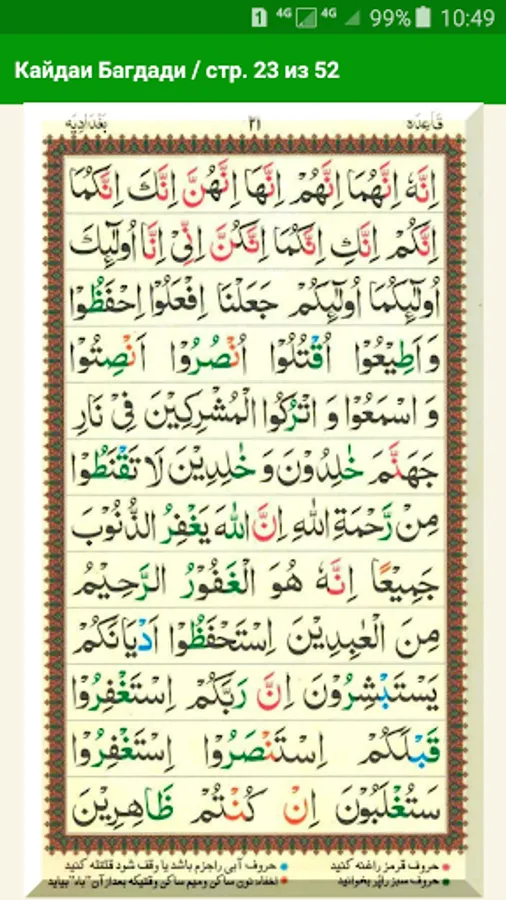 1 4G 4G 99% 10:49
Кайдаи Багдади / стр. 23 из 52
قَاعِدَه ۲۱ بَغْدَادِيَه
اِنَّهٗ اِنَّهُمَا اِنَّهُمْ اِنَّهَا اِنَّهُنَّ اِنَّكَ اِنَّكُمَا
اِنَّكُمْ اِنَّكِ اِنَّكُمَا اِنَّكُنَّ اِنِّىْ اِنَّا اُولٰٓئِكَ
اُولٰٓئِكُمَا اُولٰٓئِكُمْ جَعَلْنَا اِفْعَلُوْا اِحْفَظُوْا
وَاَطِيْعُوْا اُقْتُلُوْا اُنْصُرُوْا اَنْصِتُوْا
وَ اسْمَعُوْا وَ اتْرُكُوا الْمُشْرِكِيْنَ فِىْ نَارِ
جَهَنَّمَ خٰلِدُوْنَ وَ خٰلِدِيْنَ لَا تَقْنَطُوْا
مِنْ رَّحْمَةِ اللهِ اِنَّ اللهَ يَغْفِرُ الذُّنُوْبَ
جَمِيْعًا اِنَّهٗ هُوَ الْغَفُوْرُ الرَّحِيْمُ
مِنَ الْعٰبِدِيْنَ اِسْتَحْفَظُوْا اَدْيَانَكُمْ
يَسْتَبْشِرُوْنَ اِنَّ رَبَّكُمْ اِسْتَغْفِرُوْا
قَبْلَكُمْ اِسْتَنْصَرُوْا اِسْتَغْفِرُوْا
سَتُغْلَبُوْنَ اِنْ كُنْتُمْ ظَاهِرِيْنَ
حروف قرمز راغنه کنید حروف آبی راجزم باشد یا وقف شود قلقله کنید
حروف سبز راپُر بخوانید اخفاء نون ساکن ومیم ساکن وقتیکه بعد از آن "باء" بیاید